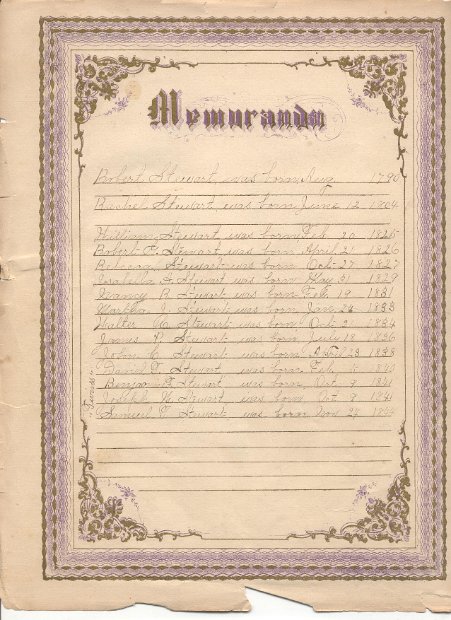 Memoranda
Robert Stewart was born Aug 1790
Rachel Stewart was born June 12 1804
William Stewart was born Feb 20 1825
Robert F. Stewart was born April 21 1826
Rebecca Stewart was born Oct 27 1827
Stewart was born May 31 1829
Nancy R Stewart was born Feb 19 1831
Martha J. Stewart was born Jan 26 1833
Walter C. Stewart was born Oct 2 1834
James P. Stewart was born July 18 1836
John C Stewart was born April 23 1838
David Stewart was born Feb 1840
Benjam F Stewart was born Oct 9 1841
Joseph H Stewart was born Oct 9 1841
Samuel T Stewart was born Nov 24 1844